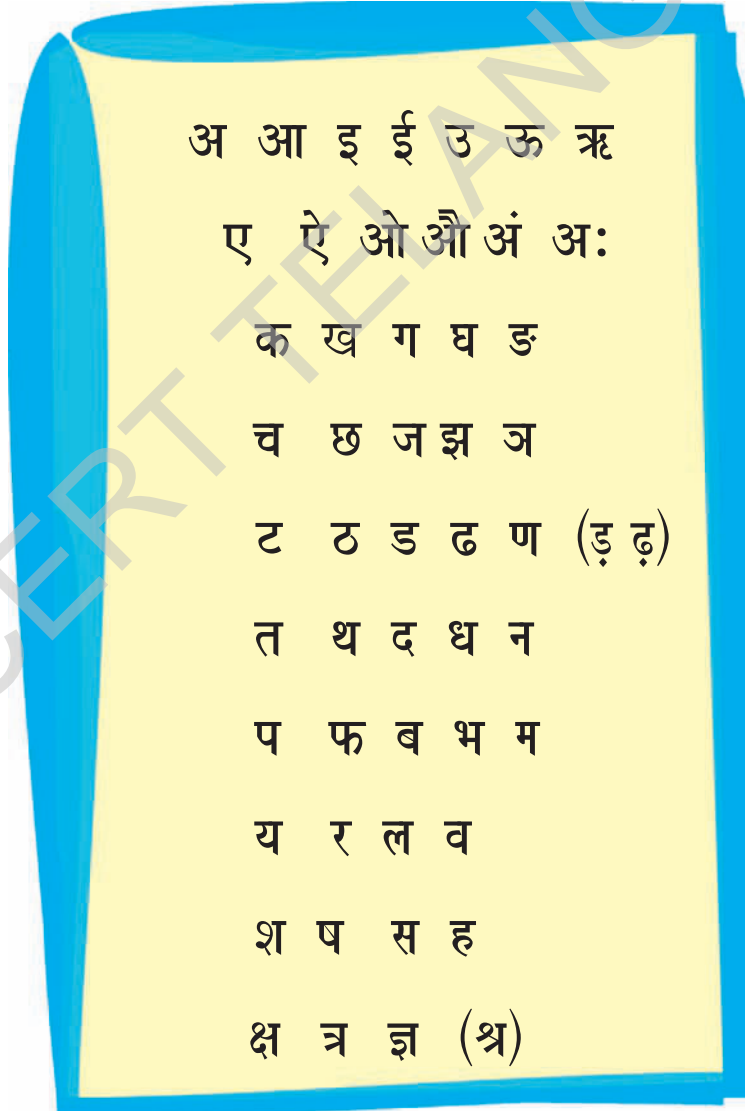 अ आ इ ई उ ऊ ऋ
ए ऐ ओ औ अं अः
क ख ग घ ङ
च छ ज झ ञ
ट ठ ड ढ ण (ड़ ढ़)
त थ द ध न
प फ ब भ म
य र ल व
श ष स ह
क्ष त्र ज्ञ (श्र)
CERT TELANG